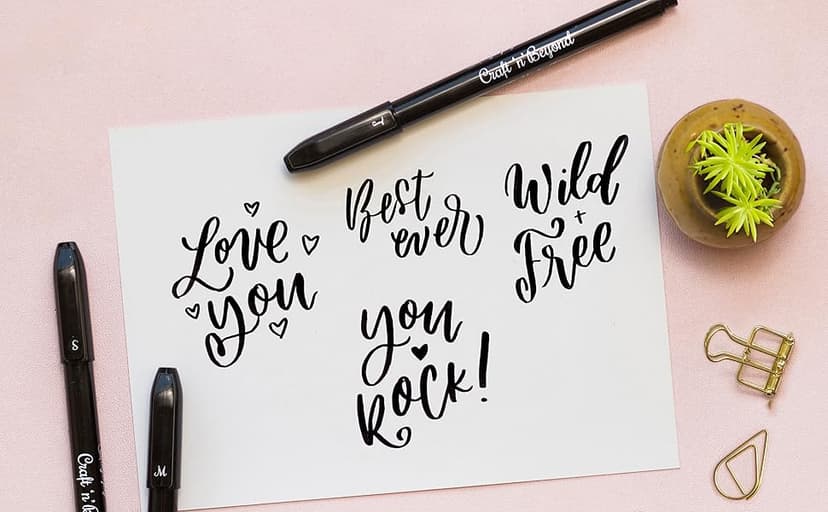 Craft 'n' Beyond
L
Love
you
Best
ever
Wild
+
Free
you
Rock!
S
Craft 'n' Be
M